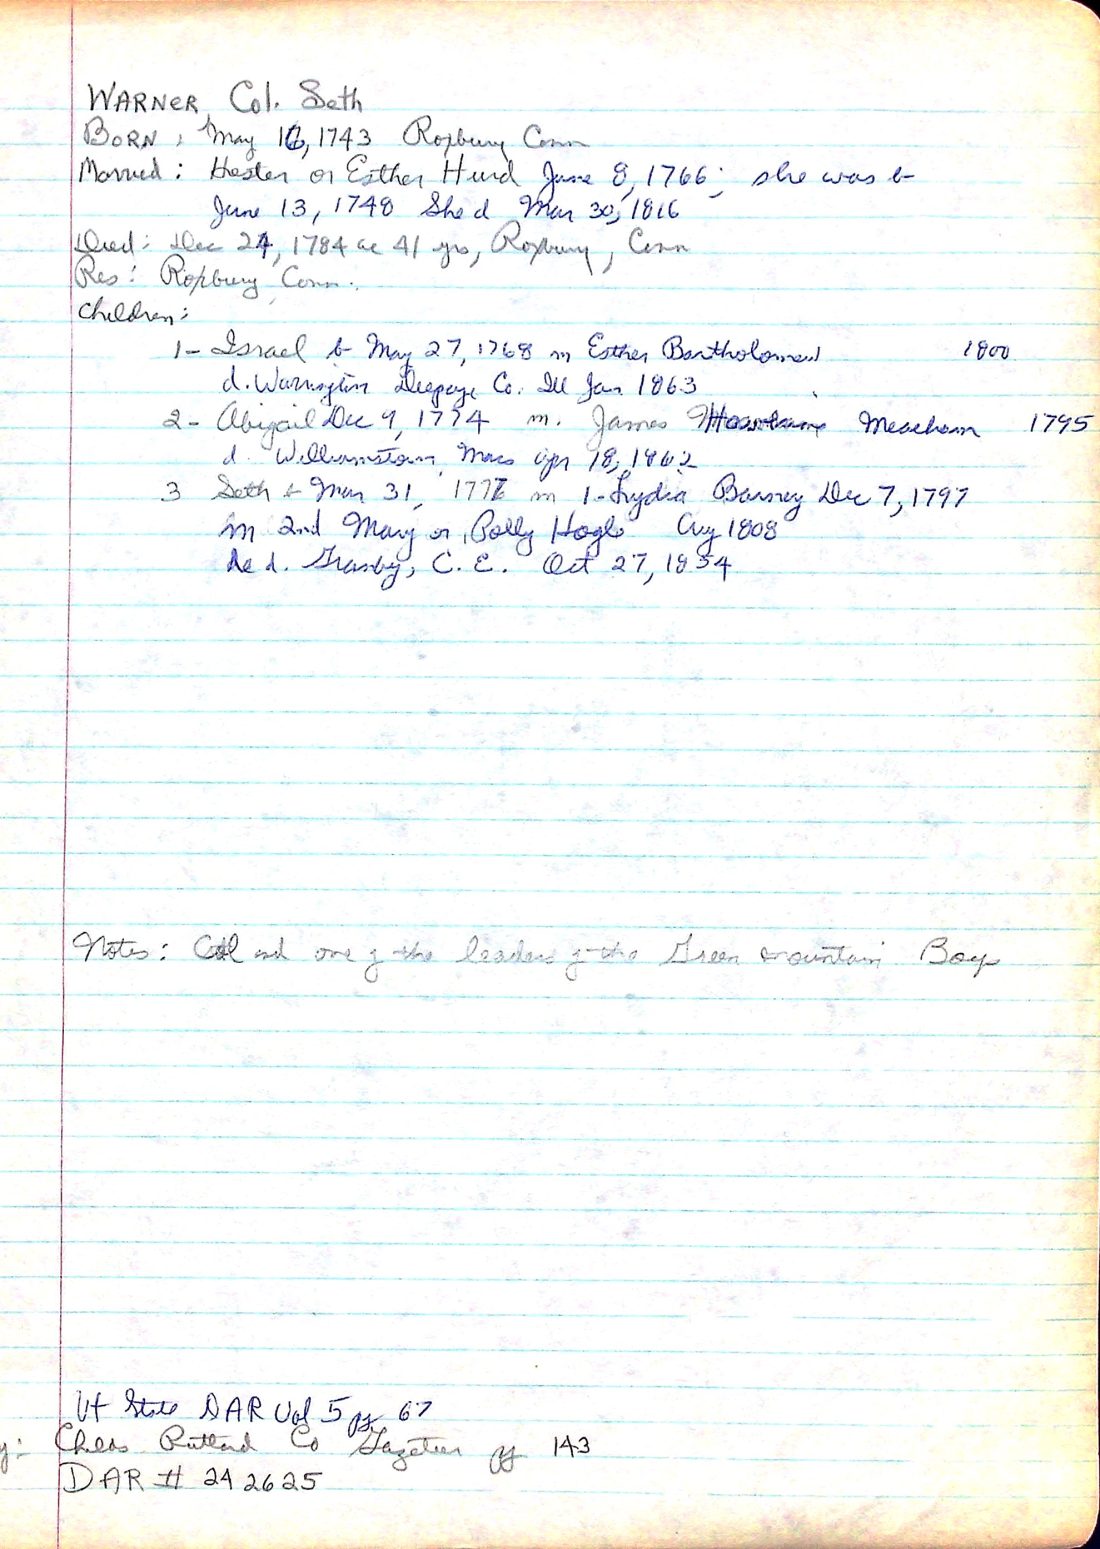 WARNER, Col. Seth
BORN: May 16, 1743 Roxbury Conn
Married: Hester or Esther Hurd June 8, 1766; she was b
June 13, 1748 She d Mar 30, 1816
Died: Dec 24, 1784 ae 41 yrs, Roxbury, Conn
Res: Roxbury Conn.
Children:
1- Israel b May 27, 1768 m Esther Bartholomew 1800
d. Warrington Depage Co. Ill Jan 1863
2- Abigail Dec 9, 1774 m. James Meacham 1795
d. Williamstown, Mass Apr 18, 1862
3 Seth b Mar 31, 1777 m 1- Lydia Barney Dec 7, 1797
m 2nd Mary or Polly Hogle Aug 1808
he d. Granby, C. E. Oct 27, 1854
Notes: Col and one of the leaders of the Green Mountain Boys
Vt State DAR Vol 5 pg 67
Childs Rutland Co Gazeteer pg 143
DAR # 242625